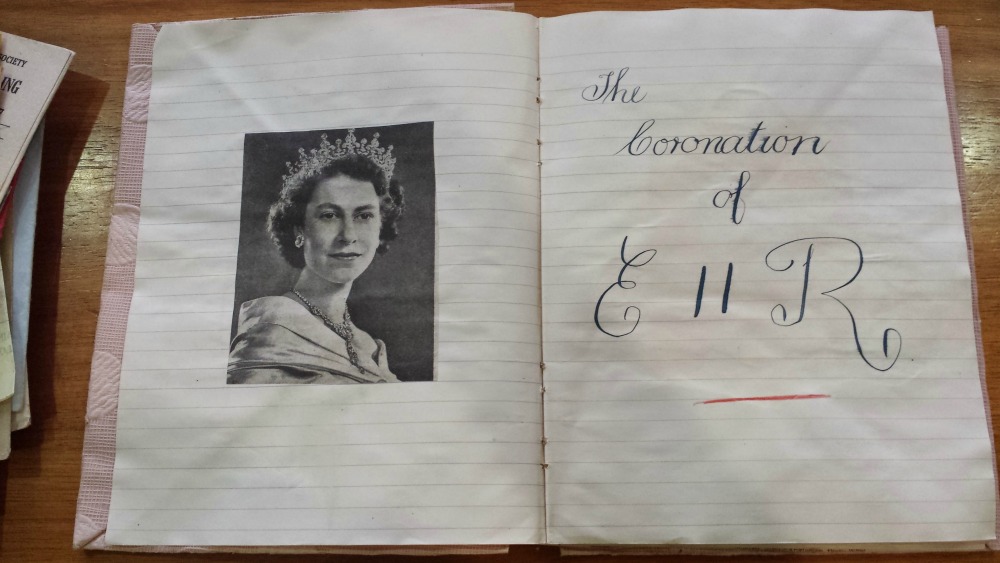 SOCIETY
ING
The
Coronation
of
E II R